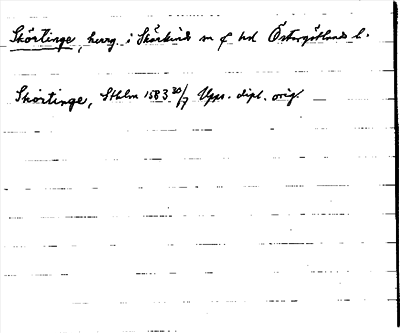 Skörtinge, herrg. i Skärkinds sn o hd Östergötlands l.
Skörtinge, Sthlm 1583 30/7 Upps. dipl. orig.